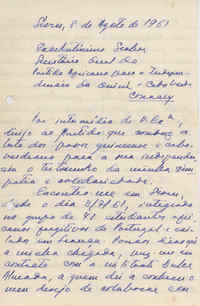 8 de Agosto de 1961
Excelentíssimo Senhor
Secretário Geral do
Partido Africano para a Independência da Guiné e Cabo Verde
Conakry
Por intermédio de V. Exª,
desejo ao Partido que conduz a
luta dos povos guineense e cabo-
verdeano para a sua independên-
cia o testemunho da minha sim-
patia e solidariedade.
Encontro-me em
desde o dia integrado
no grupo de 41 estudantes afri-
canos fugitivos de Portugal e
em França. Poucos dias após
a minha chegada, em
contacto com
Almada, a quem dei a conhecer o
meu desejo de colaborar com